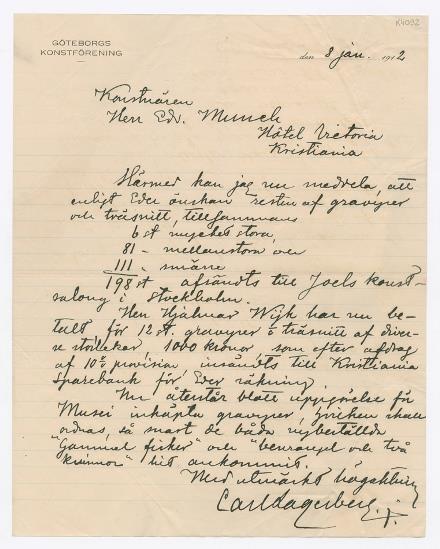 K4092
GÖTEBORGS
KONSTFÖRENING
den 8 jan. 1912
Konstnären
Herr Edv. Munch
Hôtel Victoria
Kristiania
Härmed kan jag nu meddela, att
enligt Eder önskan resten af gravyrer
och träsnitt, tillsammans
6 st mycket stora,
81 - mellanstora och
111 - smärre
198 st afsändts till Joels konst-
salong i Stockholm.
Herr Hjalmar Wijk har nu be-
talt för 12 st. gravyrer o träsnitt af diver-
se storlekar 1000 kronor som efter afdrag
af 10% provision insändts till Kristiania
Sparebank för Eder räkning.
Nu återstår blott uppgörelse för
Musei inköpta gravyrer, hvilken skall
ordnas, så snart de båda nybeställda
"Gammal fisker" och "benrangel och två
kvinnor" hit ankommit.
Med utmärkt högaktning
Carl Lagerberg. j:r